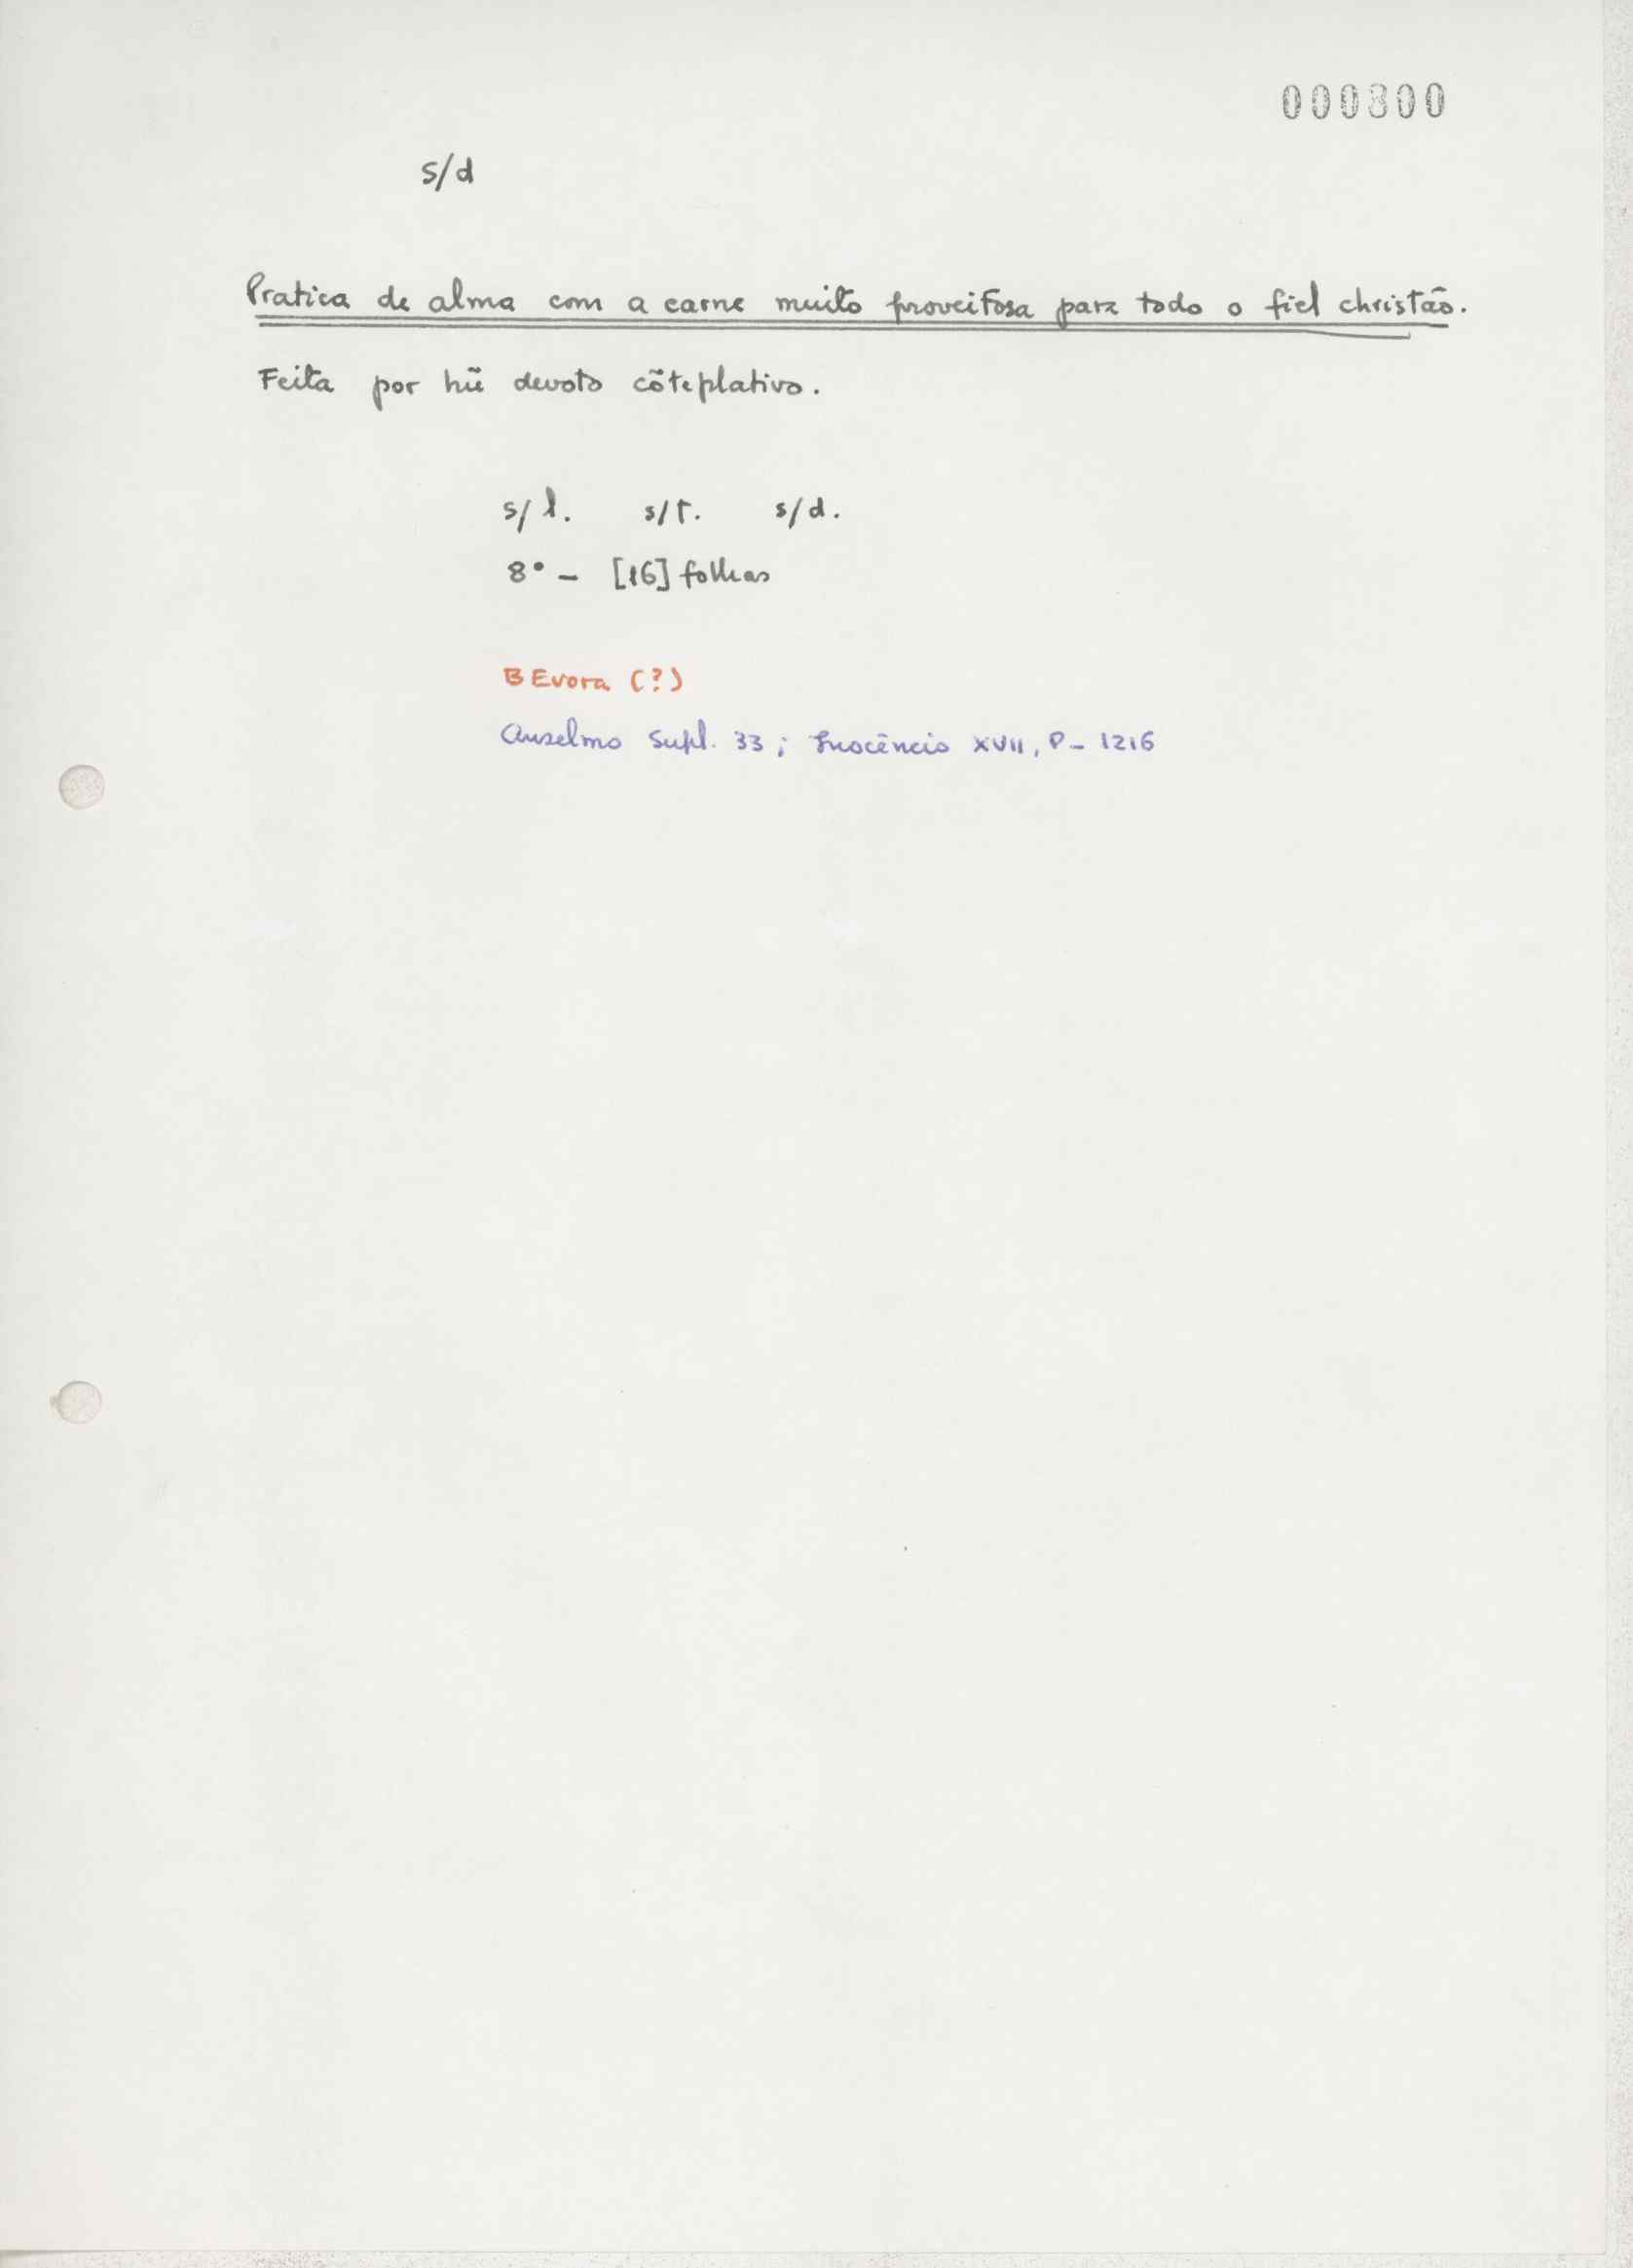 000300
s/d
Pratica de alma com a carne muito proveitosa para todo o fiel christão.
Feita por hũ devoto cõteplativo.
s/l. s/t. s/d.
8° - [16] folhas
B Evora (?)
Anselmo Supl. 33 ; Inocêncio XVII, P- 1216